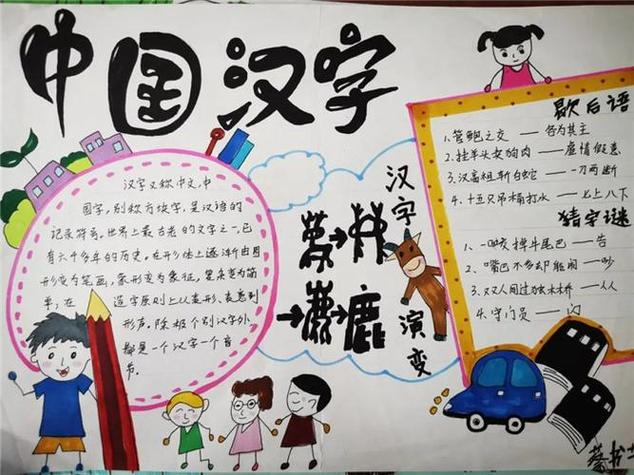 中国汉字
汉字又称中文,中
国字,别称方块字,是汉语的
记录符号,世界上最古老的文字之一,已
有六千多年的历史。在形体上逐渐由图
形变为笔画,象形变为象征,复杂变为简
单,在造字原则上从表形、表意到
形声。除极个别汉字外
都是一个汉字一个音
节。
汉字演变
鹿
歇后语
1.管鲍之交 —— 各为其主
2.挂羊头卖狗肉 —— 虚情假意
3.汉高祖斩白蛇 —— 一刀两断
4.十五只吊桶打水 —— 七上八下
猜字谜
1.一口咬掉牛尾巴 — 告
2.嘴巴不多却能闹 — 吵
3.双人同过独木桥 — 从
4.守门员 — 闪